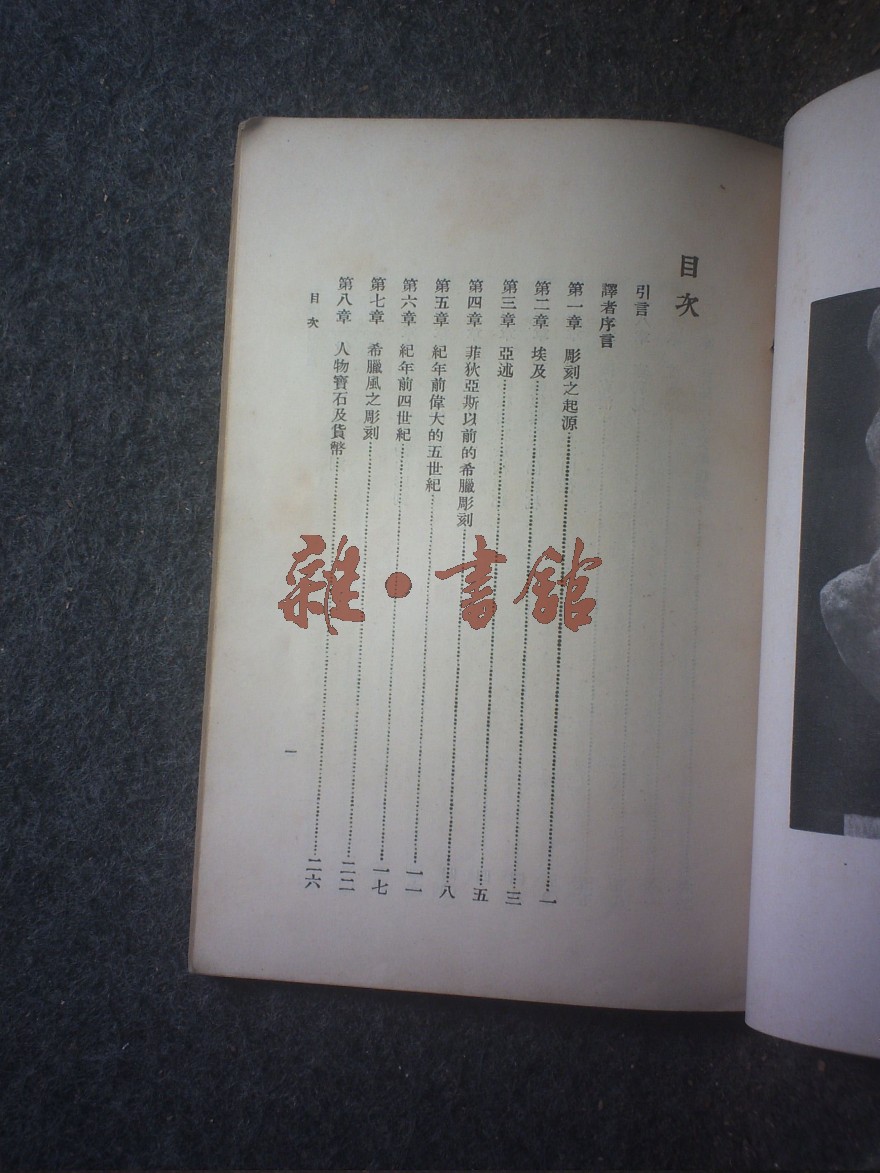 目次
引言
譯者序言
第一章 彫刻之起源……一
第二章 埃及……三
第三章 亞述……五
第四章 菲狄亞斯以前的希臘彫刻……八
第五章 紀年前偉大的五世紀……一一
第六章 紀年前四世紀……一七
第七章 希臘風之彫刻……二二
第八章 人物寶石及貨幣……二六
目次
一
雜·書館